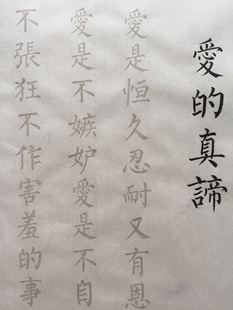 愛的真諦
愛是恒久忍耐又有恩
愛是不嫉妒愛是不自
不張狂不作害羞的事